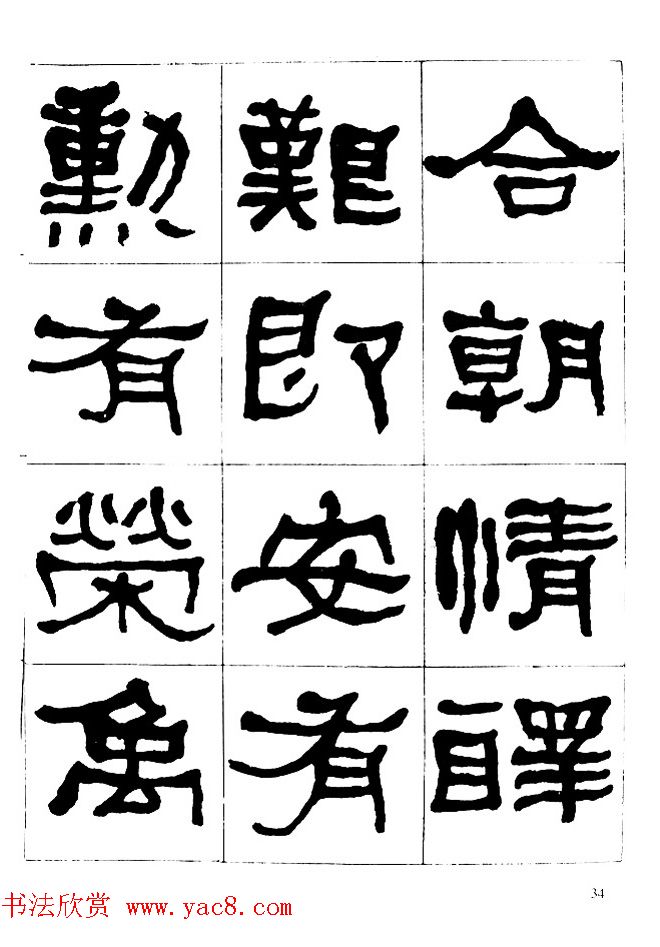 合朝情醳
艱即安有
勳有榮
34
书法欣赏 www.yac8.com